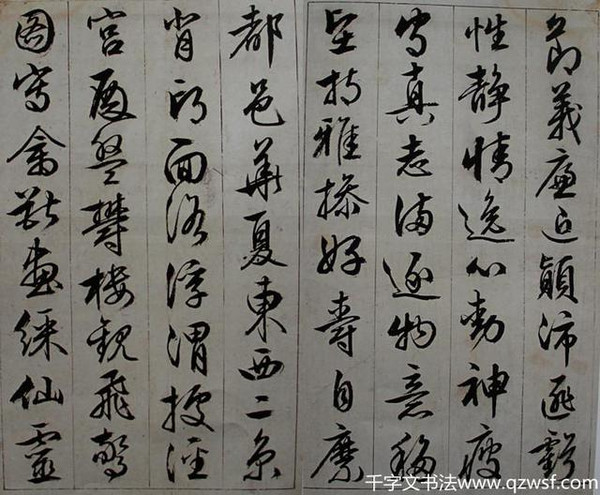 節義廉退顛沛匪虧
性靜情逸心動神疲
守真志滿逐物意移
堅持雅操好爵自縻
都邑華夏東西二京
背邙面洛浮渭據涇
宮殿盤鬱樓觀飛驚
圖寫禽獸畫綵仙靈
千字文书法www.qzwsf.com